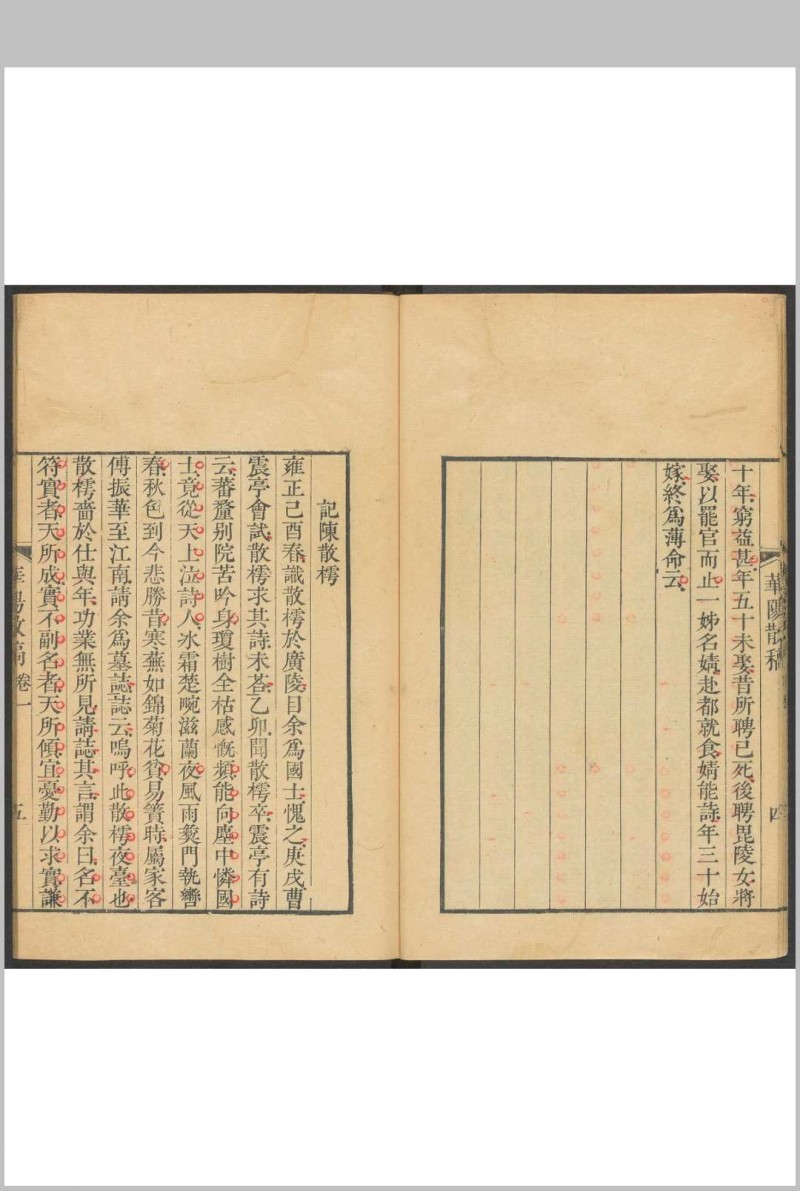 華陽散稿
四
十年窮益甚年五十未娶昔所聘已死後聘毘陵女將
娶以罷官而止一姊名婧赴都就食婧能詩年三十始
嫁終爲薄命云
記陳散樗
雍正己酉春識散樗於廣陵目余爲國士愧之庚戌曹
震亭會試散樗求其詩未荅乙卯聞散樗卒震亭有詩
云蕃釐别院苦吟身瓊樹全枯感慨頻能向塵中憐國
士竟從天上泣詩人氷霜楚畹滋蘭夜風雨䇲門執轡
春秋色到今悲勝昔寒蕪如錦菊花貧易簀時屬家客
傅振華至江南請余爲墓誌誌云嗚呼此散樗夜臺也
散樗嗇於仕與年功業無所見請誌其言謂余曰名不
符實者天所成實不副名者天所傾宜憂勤以求實謙
華陽散稿 卷一
五